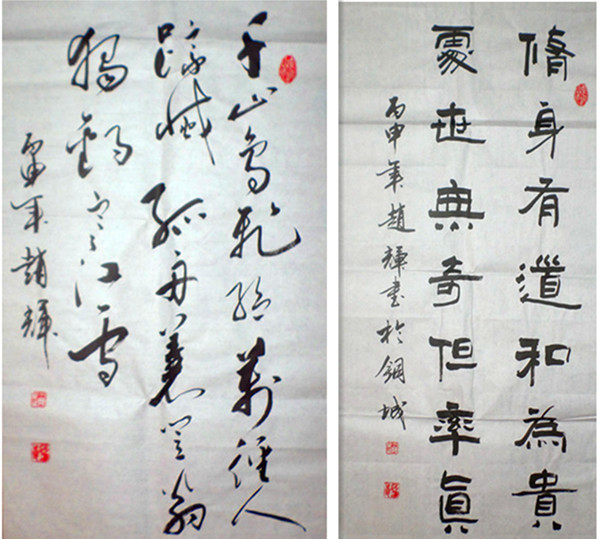 千山鳥飛絕萬徑人
踪滅孤舟蓑笠翁
獨釣寒江雪
丙申年趙輝
脩身有道和為貴
處世無奇但率眞
丙申年趙輝書於鋼城